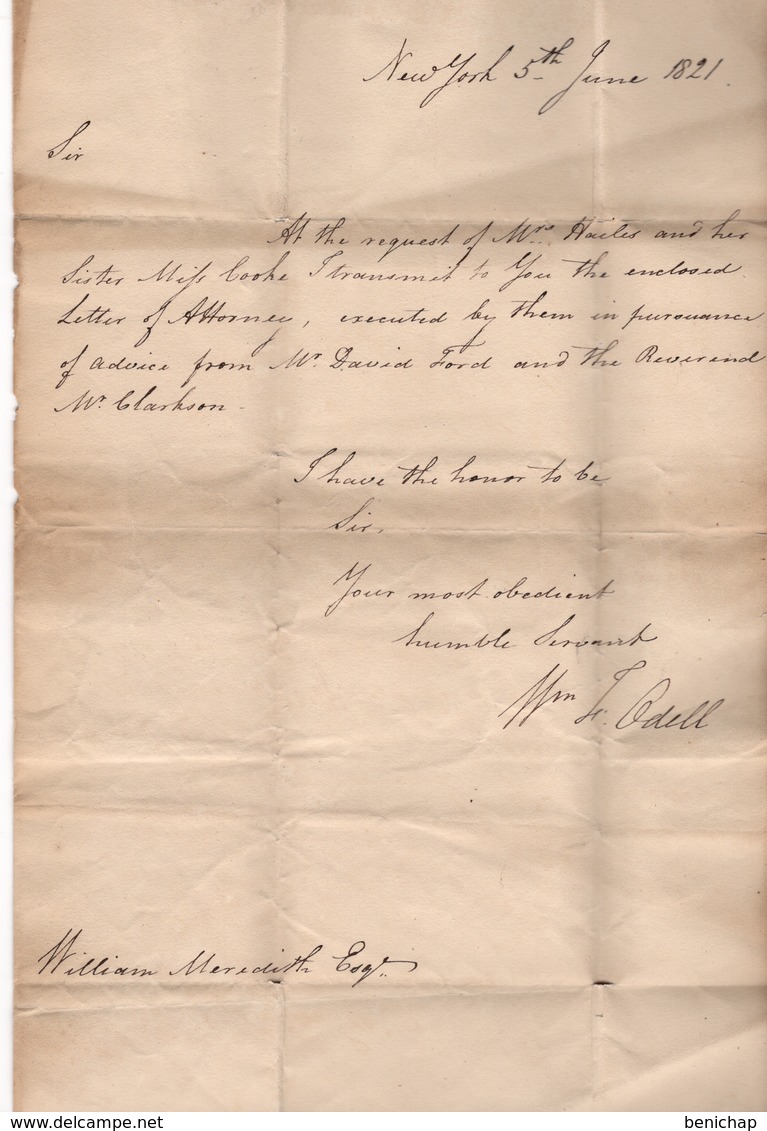 New York 5th June 1821.
Sir
At the request of Mrs. Hailes and her
Sister Miss Cooke I transmit to You the enclosed
Letter of Attorney, executed by them in pursuance
of advice from Mr. David Ford and the Reverend
Mr. Clarkson-
I have the honor to be
Sir,
Your most obedient
humble Servant
Wm F. Odell
William Meredith Esqr.
delcampe.net
benichap